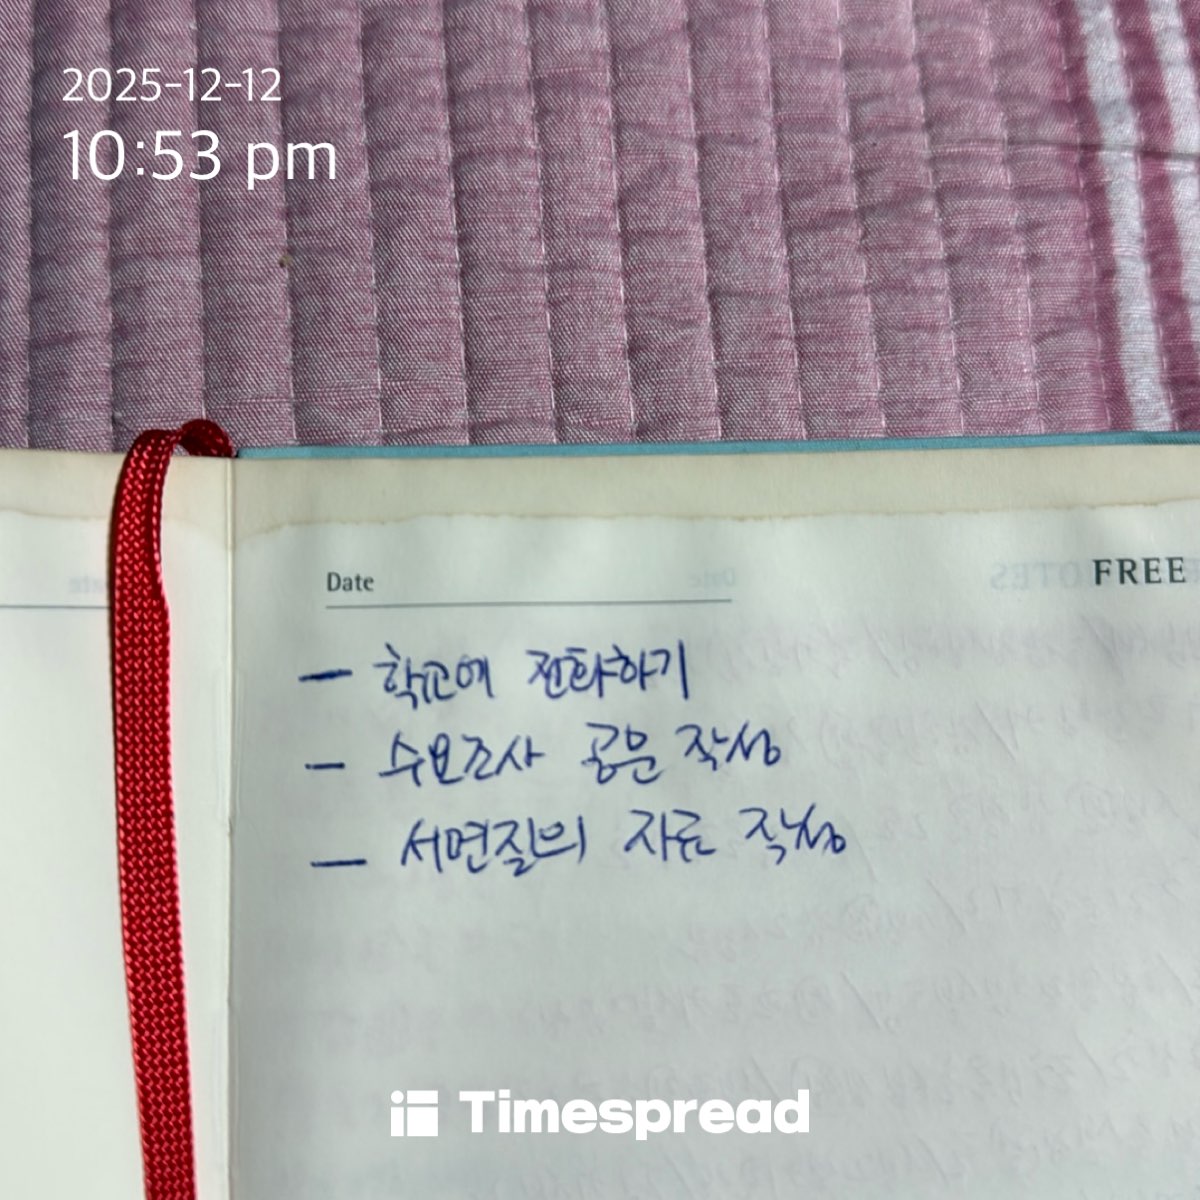 2025-12-12
10:53 pm
Date
FREE
— 학교에 전화하기
— 수요조사 공문 작성
— 서면질의 자료 작성
Timespread